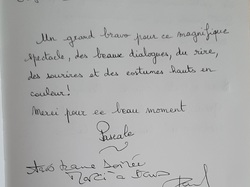 Un grand bravo pour ce magnifique
spectacle, des beaux dialogues, du rire,
des sourires et des costumes hauts en
couleur!
Merci pour ce beau moment
Pascale
Soirée